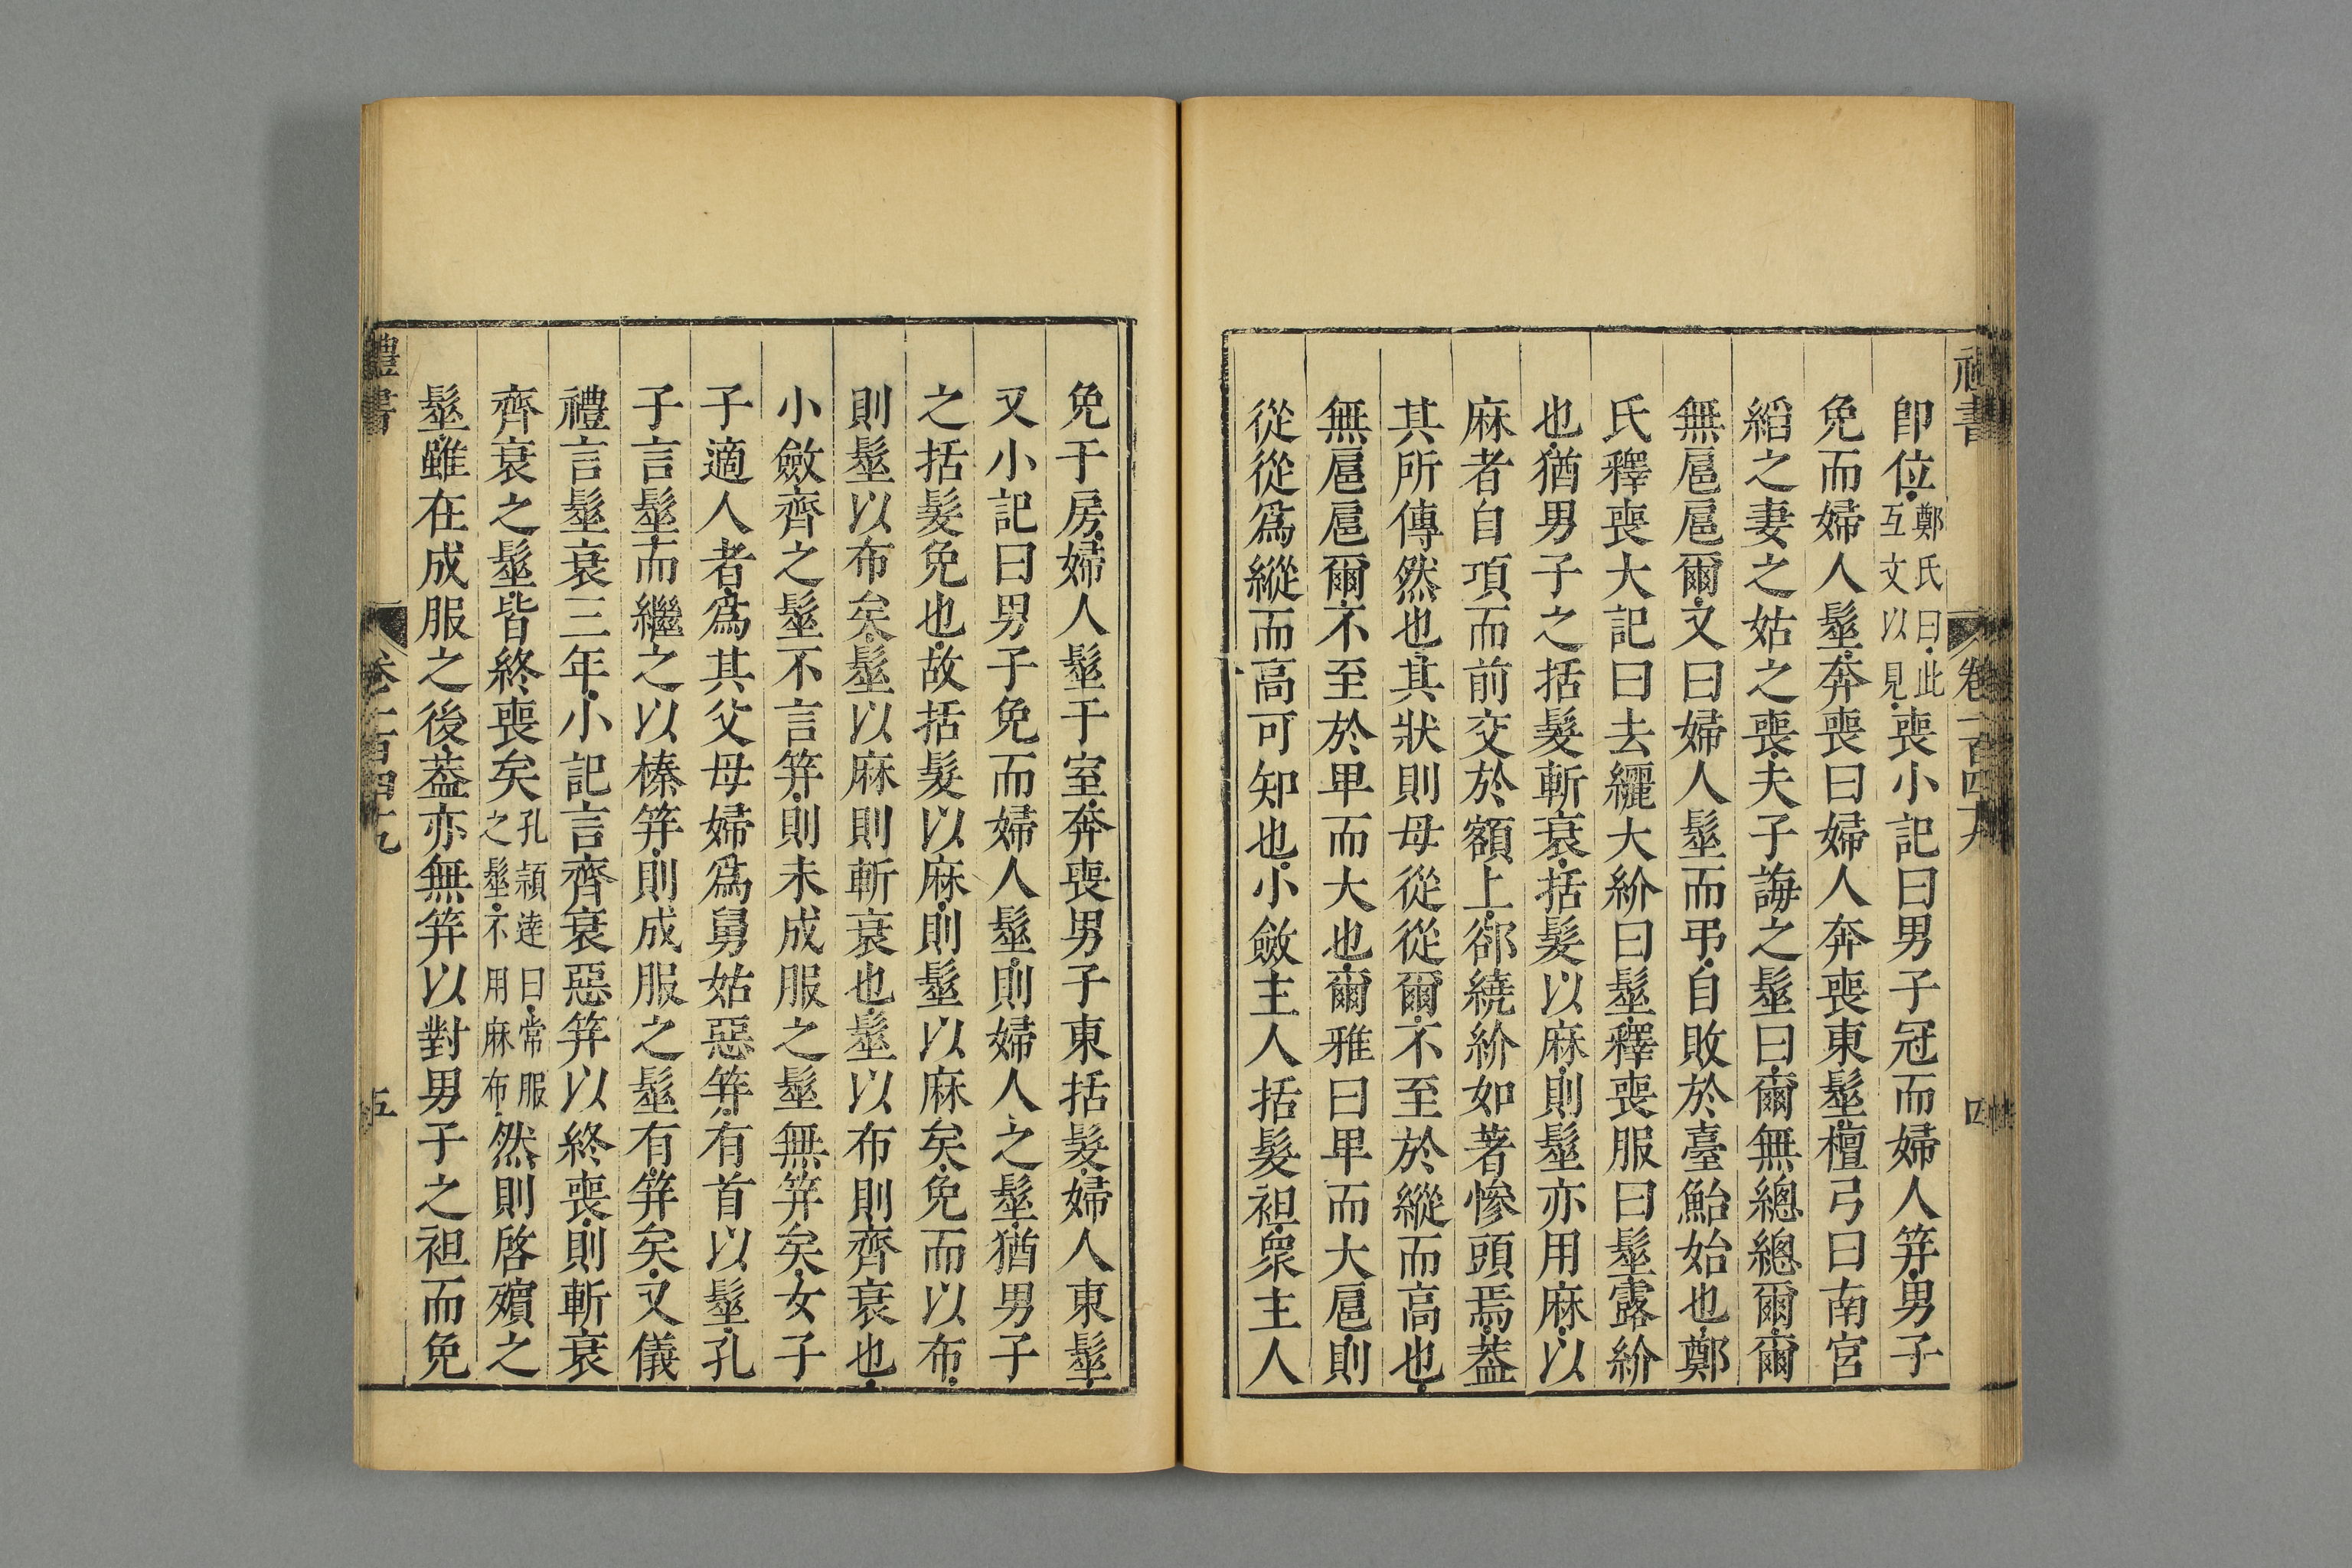 禮書 卷一百四十九 四
即位鄭氏曰此互文以見喪小記曰男子冠而婦人笄男子
免而婦人髽奔喪曰婦人奔喪東髽檀弓曰南宮
縚之妻之姑之喪夫子誨之髽曰爾無總總爾爾
無扈扈爾又曰婦人髽而弔自敗於臺鮐始也鄭
氏釋喪大記曰去纚大紒曰髽釋喪服曰髽露紒
也猶男子之括髮斬衰括髮以麻則髽亦用麻以
麻者自項而前交於額上郤繞紒如著幓頭焉葢
其所傳然也其狀則母從從爾不至於縱而高也
無扈扈爾不至於卑而大也爾雅曰卑而大扈則
從從爲縱而高可知也小斂主人括髮袒衆主人
免于房婦人髽于室奔喪男子東括髮婦人東髽
又小記曰男子免而婦人髽則婦人之髽猶男子
之括髮免也故括髮以麻則髽以麻矣免而以布
則髽以布矣髽以麻則斬衰也髽以布則齊衰也
小斂齊之髽不言笄則未成服之髽無笄矣女子
子適人者爲其父母婦爲舅姑惡笄有首以髽孔
子言髽而繼之以榛笄則成服之髽有笄矣又儀
禮言髽衰三年小記言齊衰惡笄以終喪則斬衰
齊衰之髽皆終喪矣孔潁達曰常服之髽不用麻布然則啓殯之
髽雖在成服之後葢亦無笄以對男子之袒而免
禮書 卷一百四十九 五